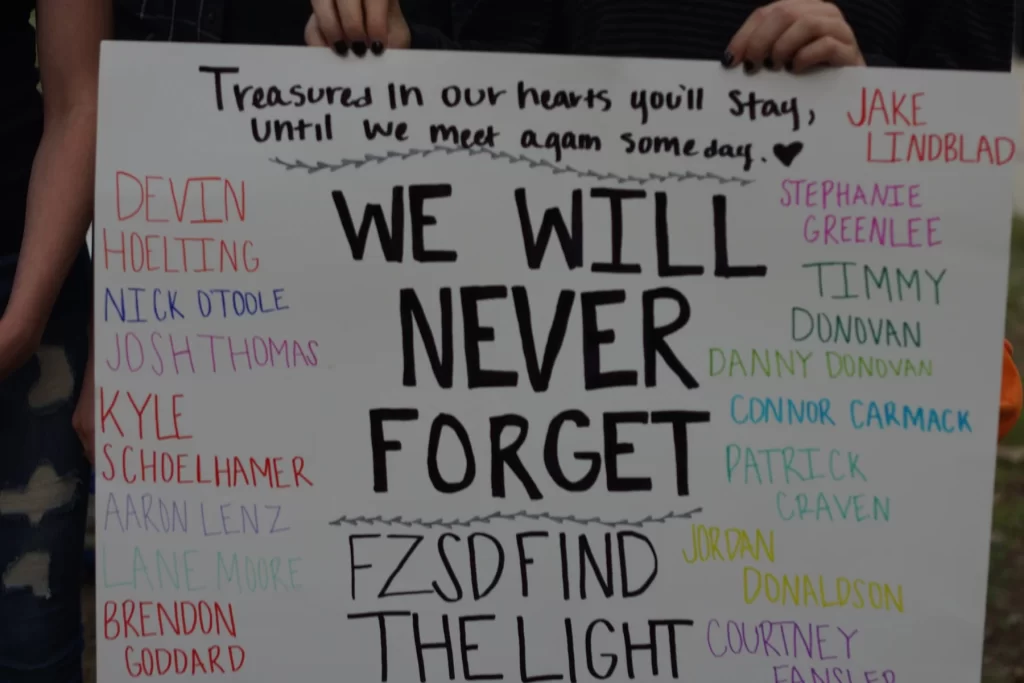 Treasured in our hearts you'll stay,
until we meet again someday.
WE WILL
NEVER
FORGET
FZSD FIND
THE LIGHT
DEVIN
HOELTING
NICK OTOOLE
JOSH THOMAS
KYLE
SCHOELHAMER
AARON LENZ
LANE MOORE
BRENDON
GODDARD
JAKE
LINDBLAD
STEPHANIE
GREENLEE
TIMMY
DONOVAN
DANNY DONOVAN
CONNOR CARMACK
PATRICK
CRAVEN
JORDAN
DONALDSON
COURTNEY
FANSLER